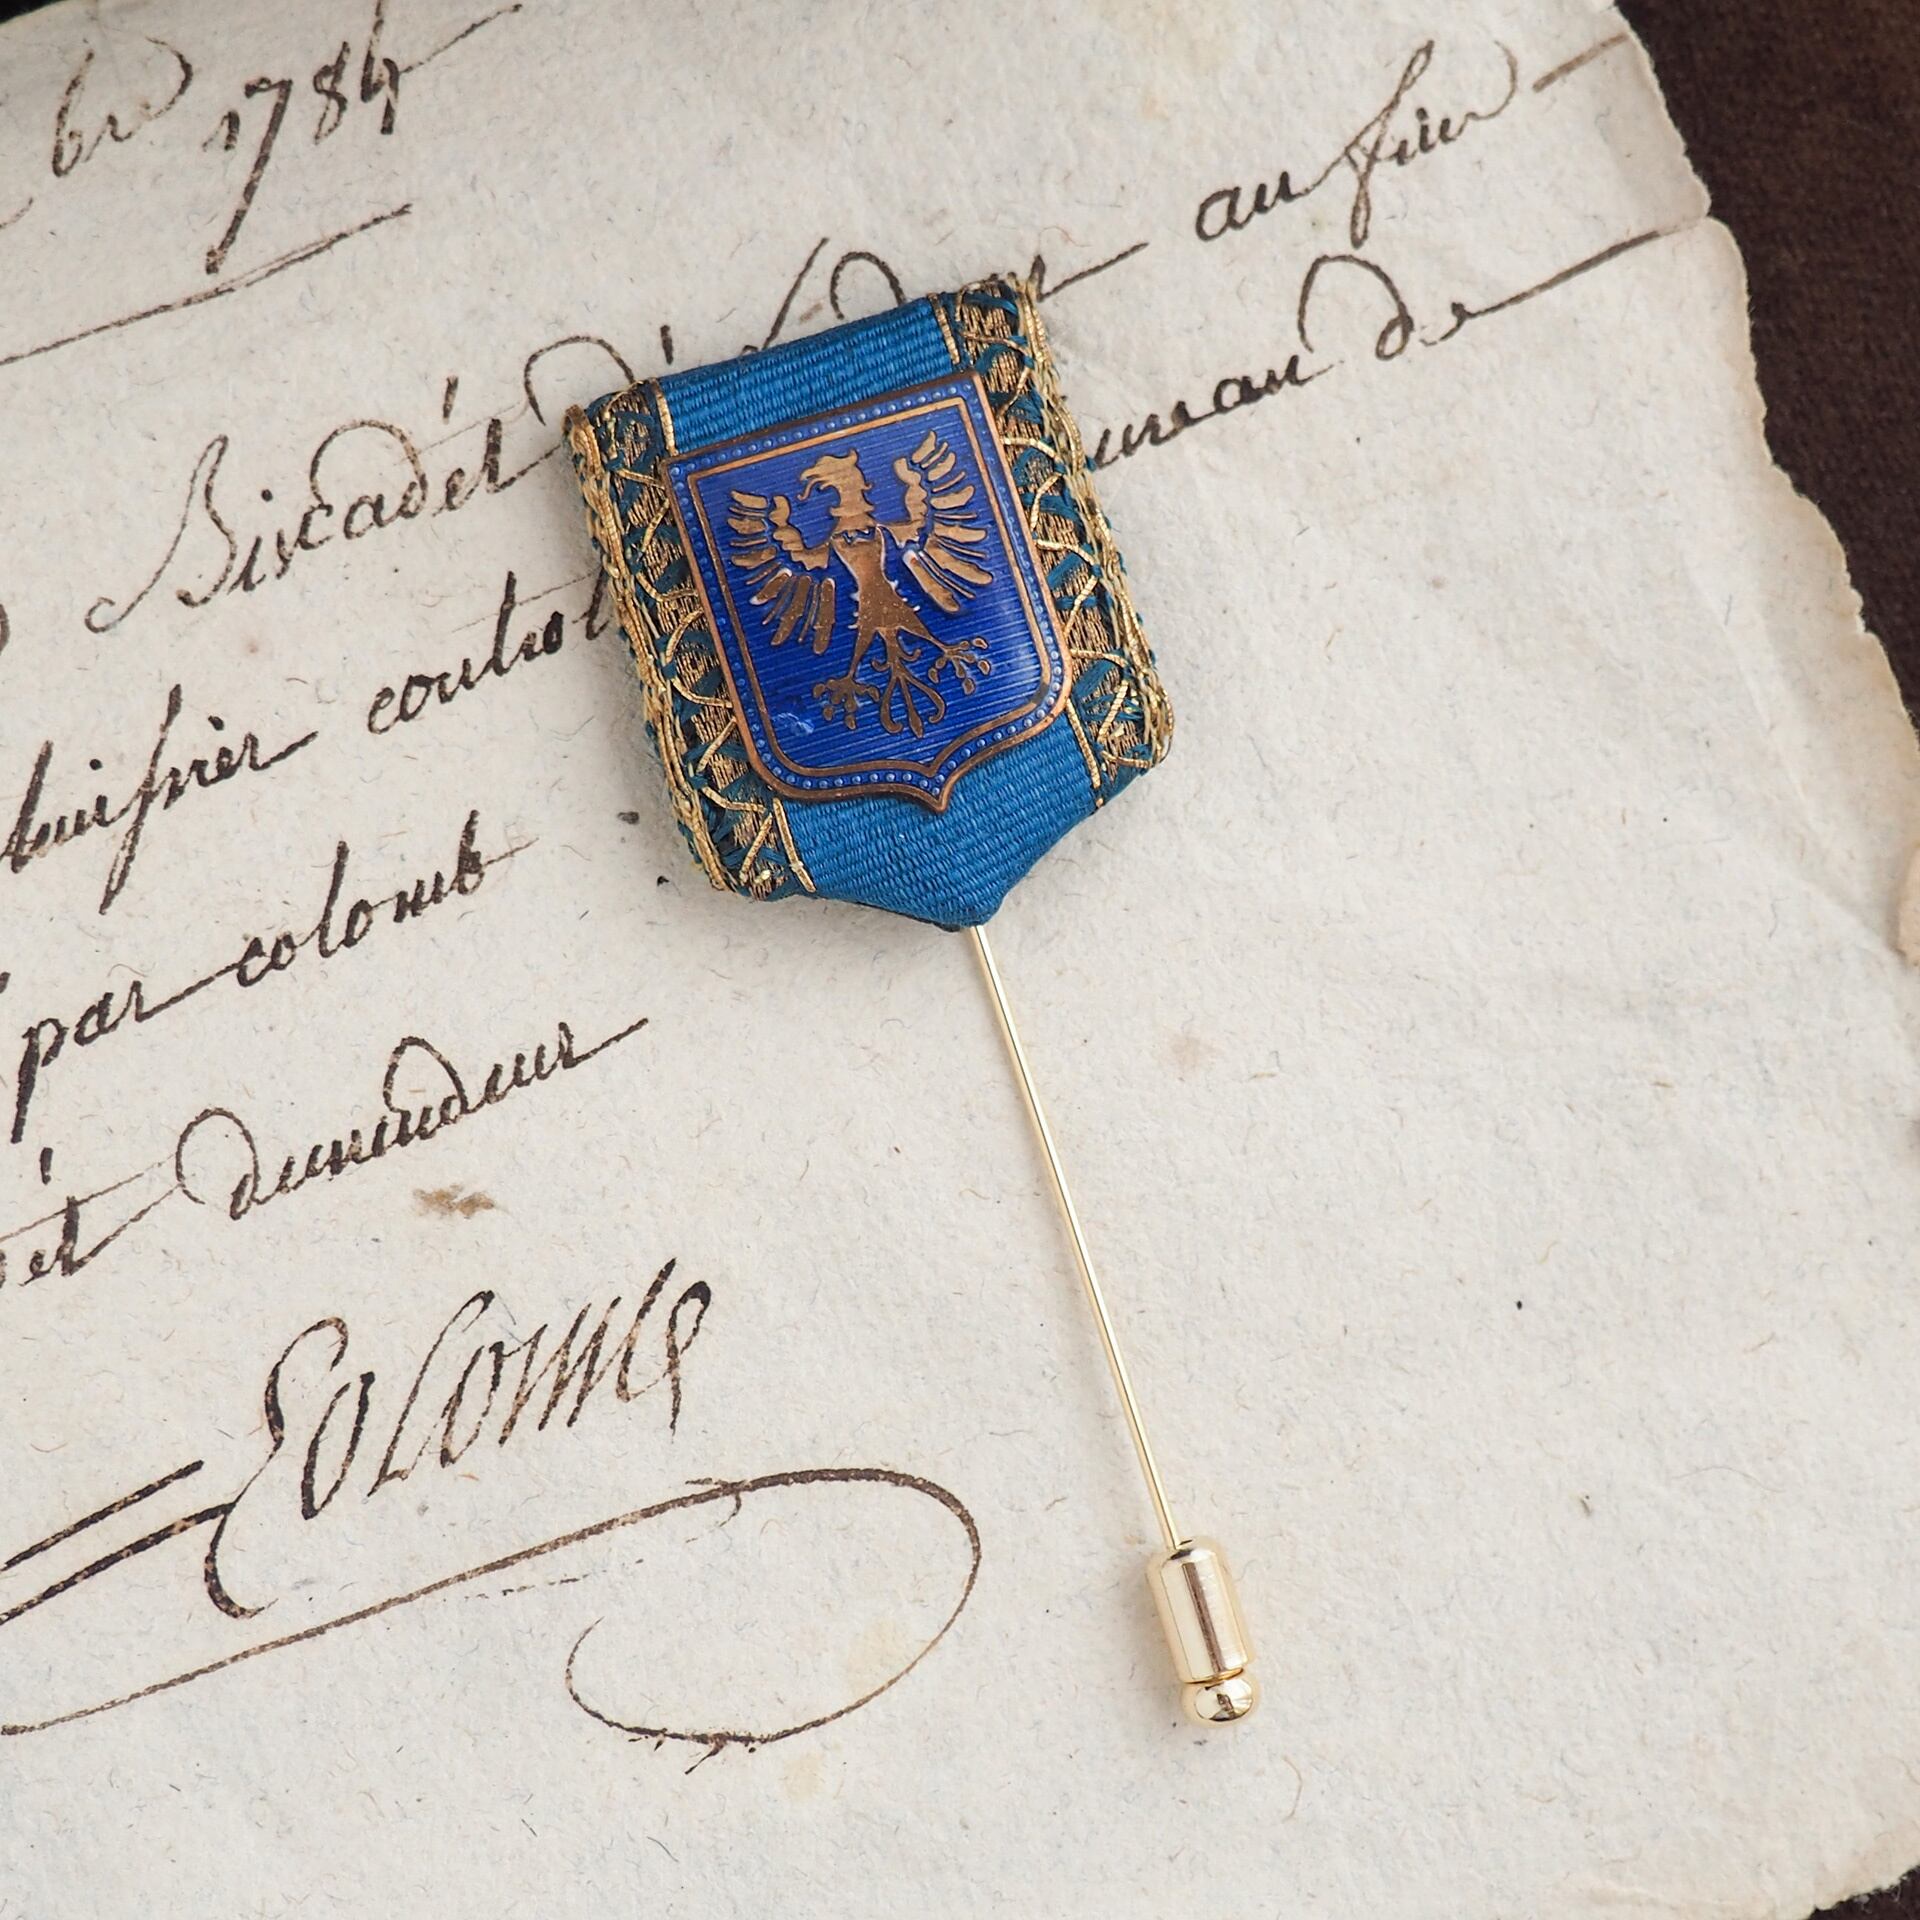 bre 1784
au sieur
Biscadet
bureau de
huissier control
par colomb
et demandeur
Colomb